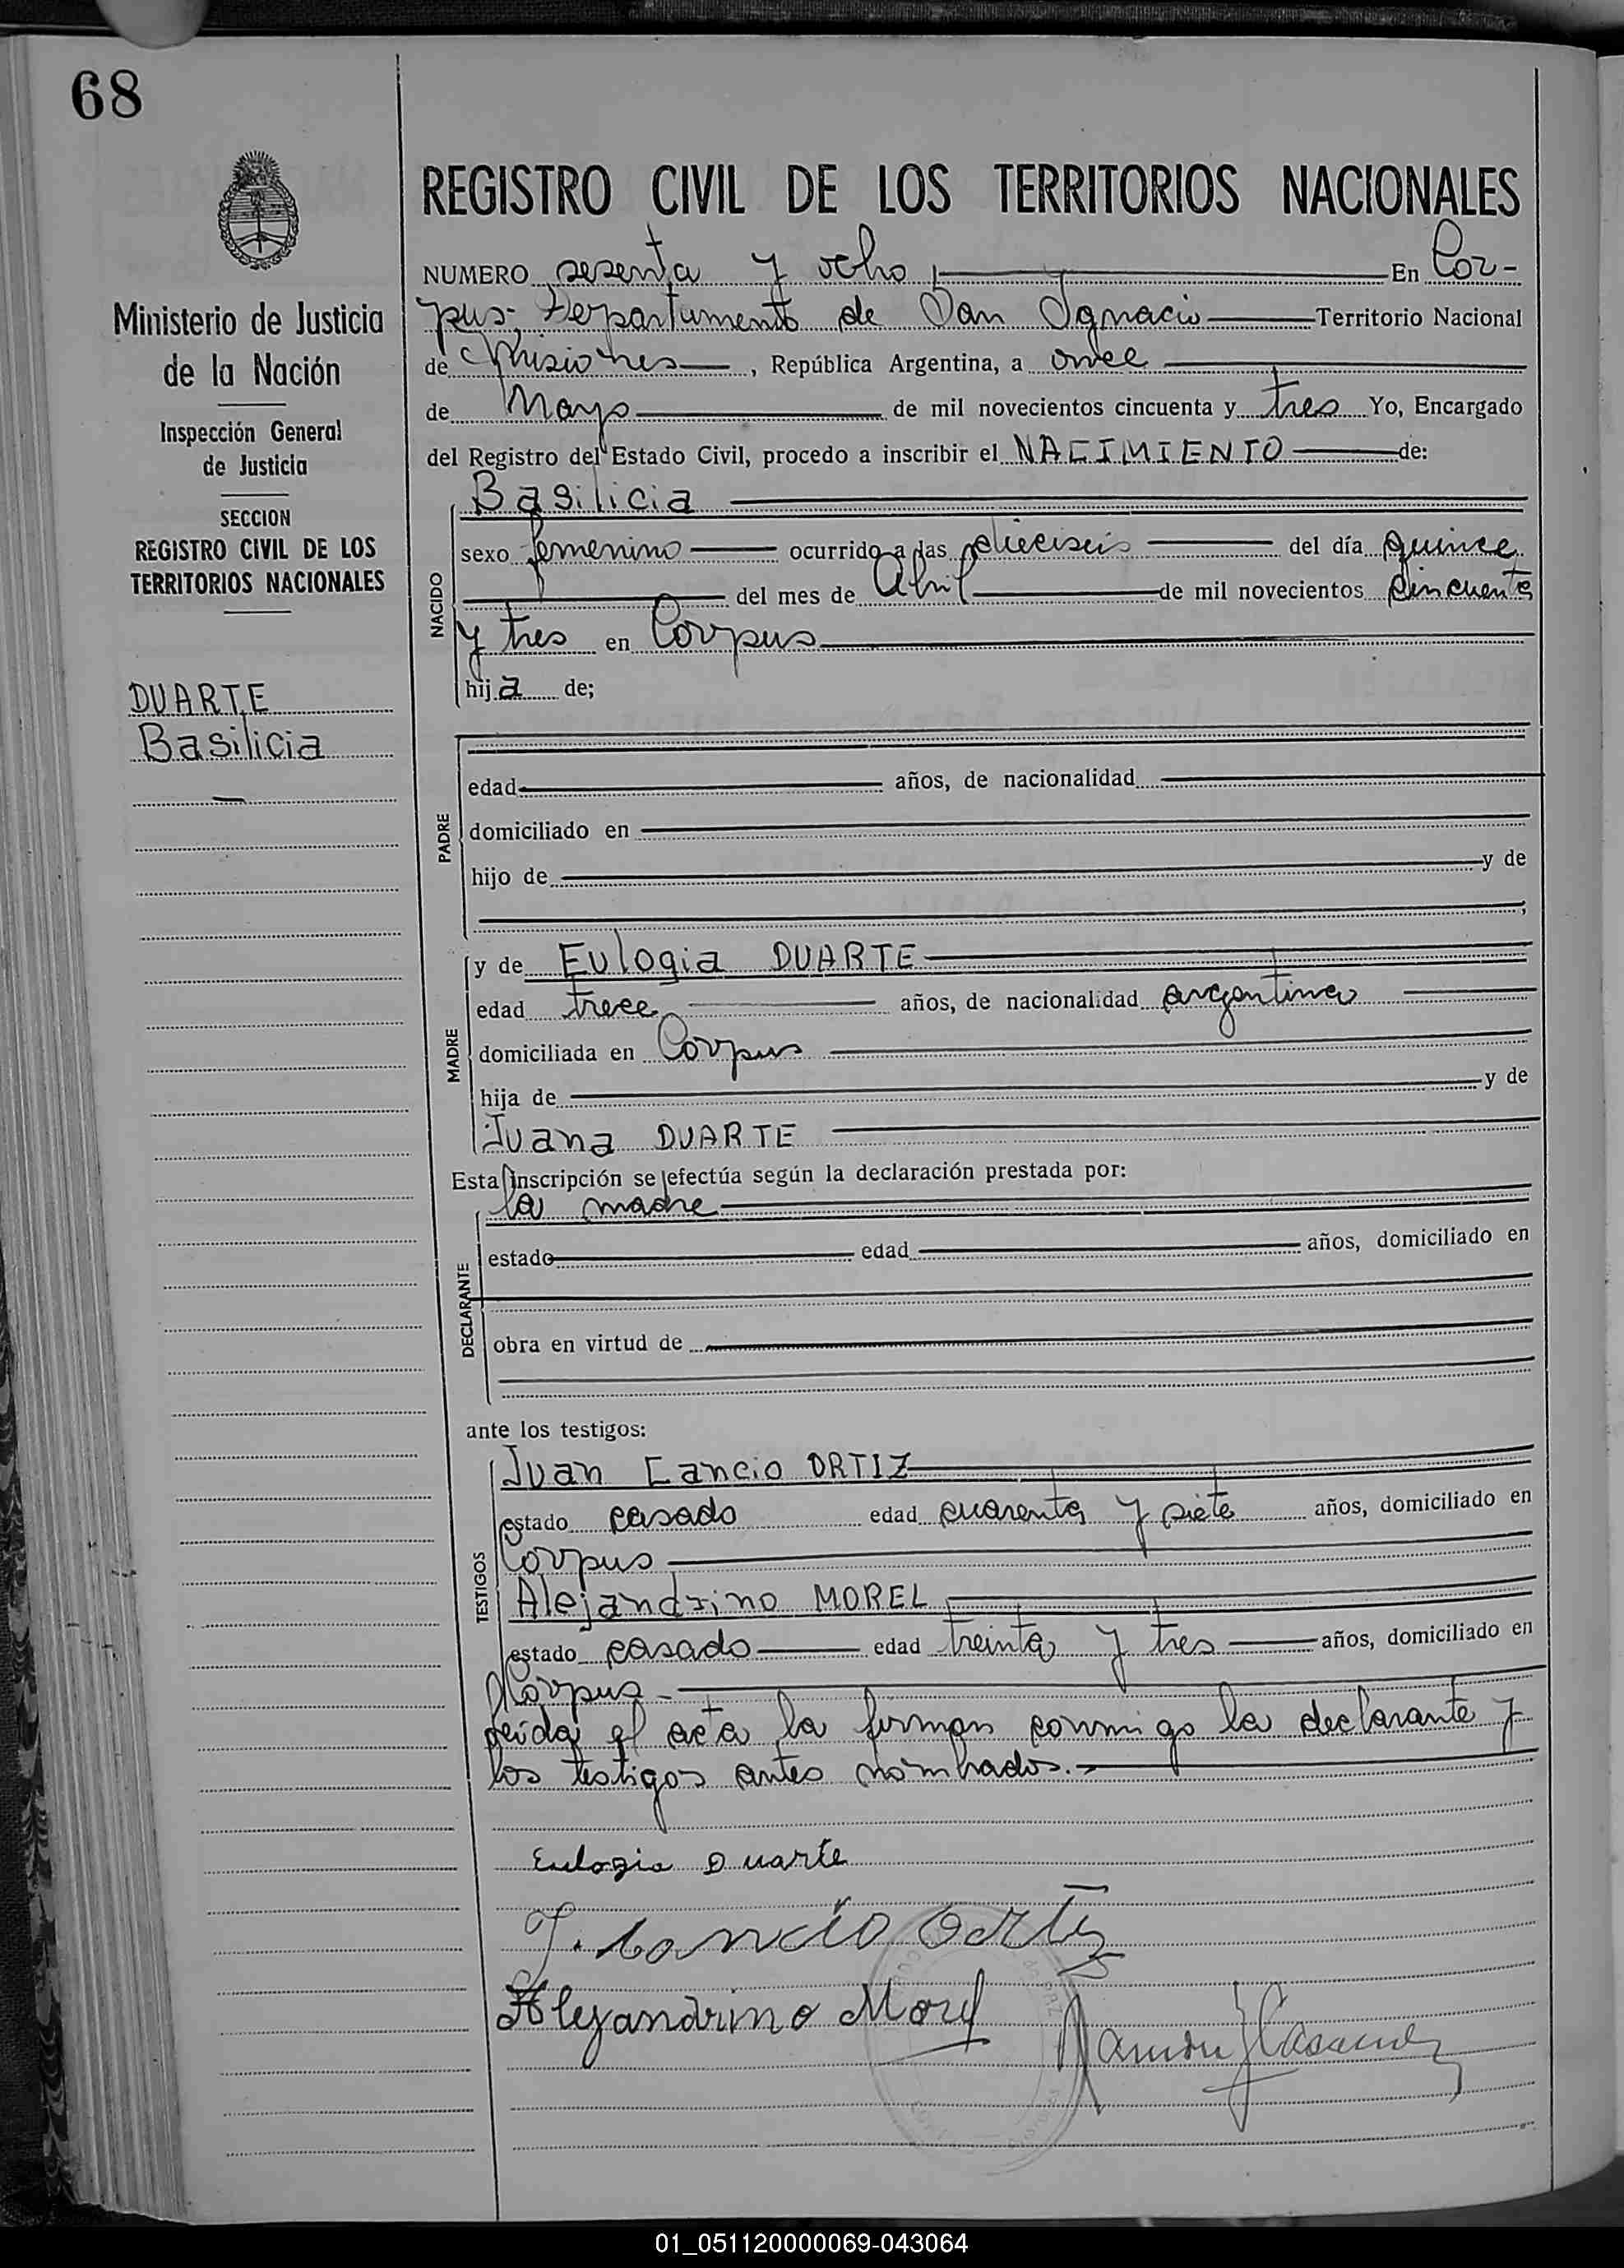 68
Ministerio de Justicia
de la Nación
Inspección General
de Justicia
SECCION
REGISTRO CIVIL DE LOS
TERRITORIOS NACIONALES
DUARTE
Basilicia
REGISTRO CIVIL DE LOS TERRITORIOS NACIONALES
NUMERO sesenta y ocho En Cor-
pus, Departamento de San Ignacio Territorio Nacional
de Misiones, República Argentina, a once
de Mayo de mil novecientos cincuenta y tres Yo, Encargado
del Registro del Estado Civil, procedo a inscribir el NACIMIENTO de:
NACIDO
Basilicia
sexo femenino ocurrido a las dieciseis del día quince
del mes de Abril de mil novecientos cincuenta
y tres en Corpus
hija de;
PADRE
edad años, de nacionalidad
domiciliado en
hijo de y de
MADRE
y de Eulogia DUARTE
edad trece años, de nacionalidad argentina
domiciliada en Corpus
hija de y de
Juana DUARTE
Esta inscripción se efectúa según la declaración prestada por:
DECLARANTE
la madre
estado edad años, domiciliado en
obra en virtud de
ante los testigos:
TESTIGOS
Juan Cancio ORTIZ
estado casado edad cuarenta y siete años, domiciliado en
Corpus
Alejandrino MOREL
estado casado edad treinta y tres años, domiciliado en
Corpus.-
Leida el acta la firman conmigo la declarante y
los testigos antes nombrados.-
Eulogia Duarte
J. Cancio Ortiz
Alejandrino Morel
Ramón
01_051120000069-043064